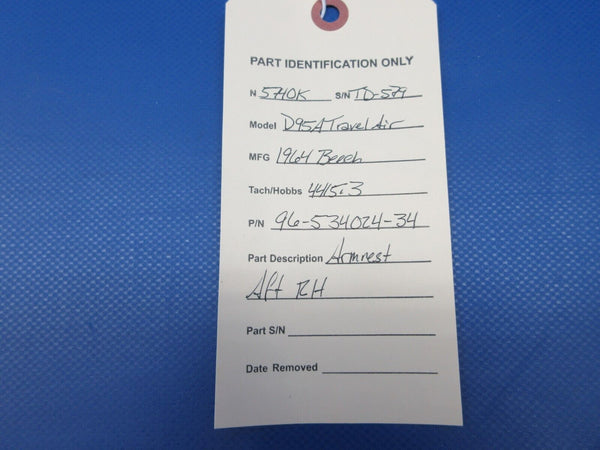 PART IDENTIFICATION ONLY
N 5740K S/N TD-579
Model D95A Travel Air
MFG 1964 Beech
Tach/Hobbs 4415.3
P/N 96-534024-34
Part Description Armrest
Aft RH
Part S/N
Date Removed